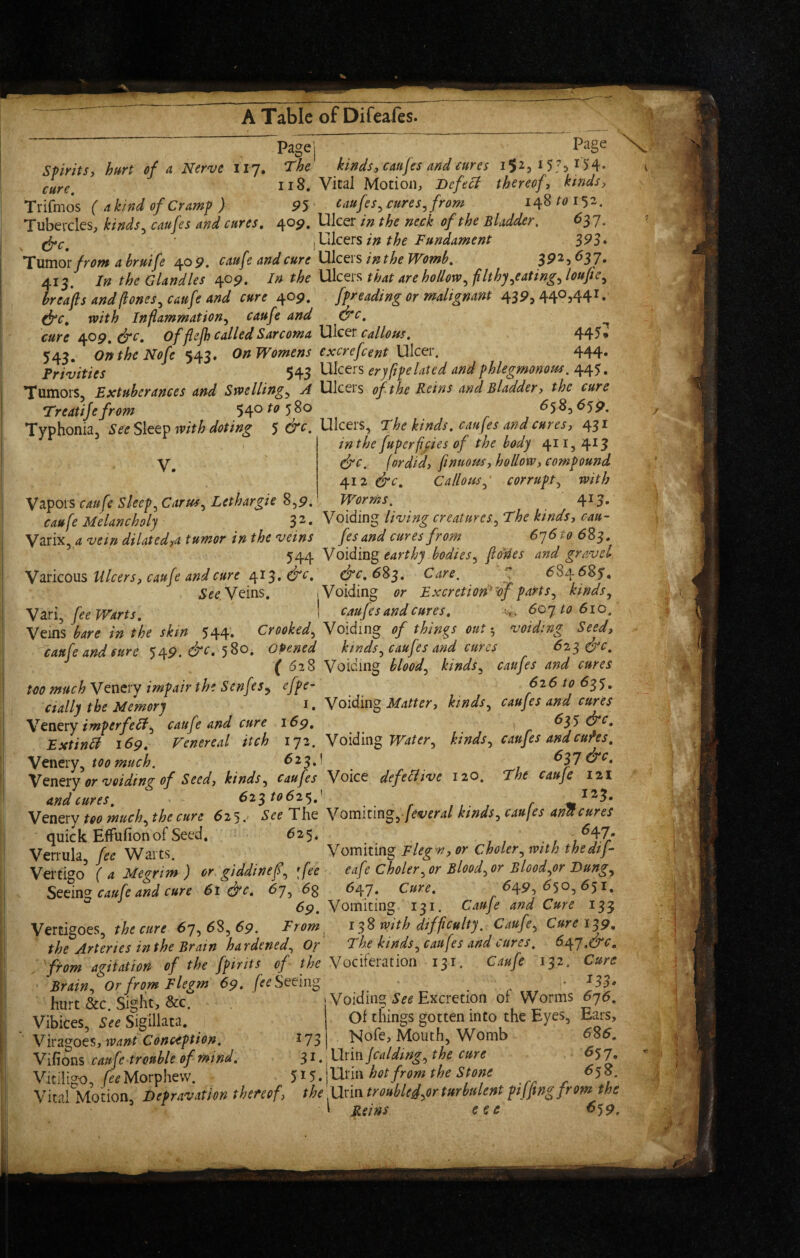 A Table of Difeafes.
Page
Spirits, hurt of a Nerve 117. The
cure. 118.
Trifmos ( a kind of Cramp ) 95
Tubercles, kinds, caufes and cures. 409.
&c.
Tumor from a bruife 409. caufe and cure
413. In the Glandles 409. In the
breafts and ftones, caufe and cure 409.
&c. with Inflammation, caufe and
cure 409. &c. Of flefh called Sarcoma
543. On the Nofe 543. On Womens
Privities 543
Tumors, Extuberances and Swelling, A
Treatife from 540 to 580
Typhonia, See Sleep with doting 5 &c.
V.
Vapors caufe Sleep, Carus, Lethargie 8,9.
caufe Melancholy 32.
Varix, a vein dilated, a tumor in the veins
544
Varicous Ulcers, caufe and cure 413. &c.
See Veins.
Vari, fee Warts.
Veins bare in the skin 544. Crooked,
caufe and cure 549. &c. 580. Opened
( 628
too much Venery impair the Senfes, efpe-
cially the Memory 1.
Venery imperfect, caufe and cure 169.
Extinct 169. Venereal itch 172.
Venery, too much. 623.
Venery or voiding of Seed, kinds, caufes
and cures. 623 to 625.
Venery too much, the cure 625. See The
quick Effufion of Seed. 625.
Verrula, fee Warts.
Vertigo ( a Megrim ) or giddinefs, fee
Seeing caufe and cure 61 &c. 67, 68
69.
Vertigoes, the cure 67, 68, 69. From
the Arteries in the Brain hardened, Or
from agitation of the fpirits of the
Brain, Or from Flegm 69. fee Seeing
hurt &c. Sight, &c.
Vibices, See Sigillata.
Viragoes, want Conception. 173
Vifions caufe trouble of mind. 31.
Vitiligo, fee Morphew. 515.
Vital Motion, Depravation thereof, the
Page
kinds, caufes and cures 152, 153, 154.
Vital Motion, Defect thereof, kinds,
caufes, cures, from 148 to 152.
Ulcer in the neck of the Bladder. 637.
Ulcers in the Fundament 393.
Ulcers in the Womb. 392, 637.
Ulcers that are hollow, filthy, eating, loufie,
fpreading or malignant 439, 440, 441.
&c.
Ulcer callous. 445.
excrefcent Ulcer. 444.
Ulcers eryfipelated and phlegmonous. 445.
Ulcers of the Reins and Bladder, the cure
658, 659.
Ulcers, The kinds. caufes and cures, 431
in the fuperficies of the body 411, 413
&c. fordid, finuous, hollow, compound
412 &c. Callous, corrupt, with
Worms. 413.
Voiding living creatures, The kinds, cau-
fes and cures from 676 to 683.
Voiding earthy bodies, ftones and gravel
&c. 683. Care. 684 685.
Voiding or Excretion of parts, kinds,
caufes and cures. 607 to 610.
Voiding of things out; voiding Seed,
kinds, caufes and cures 623 &c.
Voiding blood, kinds, caufes and cures
626 to 635.
Voiding Matter, kinds, caufes and cures
635 &c.
Voiding Water, kinds, caufes and cures.
637 &c.
Voice defective 120. The caufe 121
123.
Vomiting, feveral kinds, caufes and cures
647.
Vomiting Flegm, or Choler, with the dif-
eafe Choler, or Blood, or Blood, or Dung,
647. Cure. 649, 650, 651.
Vomiting 131. Caufe and Cure 133
138 with difficulty. Caufe, Cure 139.
The kinds, caufes and cures. 647, &c.
Vociferation 131. Caufe 132. Cure
133.
Voiding See Excretion of Worms 676.
Of things gotten into the Eyes, Ears,
Nofe, Mouth, Womb 686.
Urin fcalding, the cure 657.
Urin hot from the Stone 658.
Urin troubled, or turbulent piffing from the
Reins e e e 659.